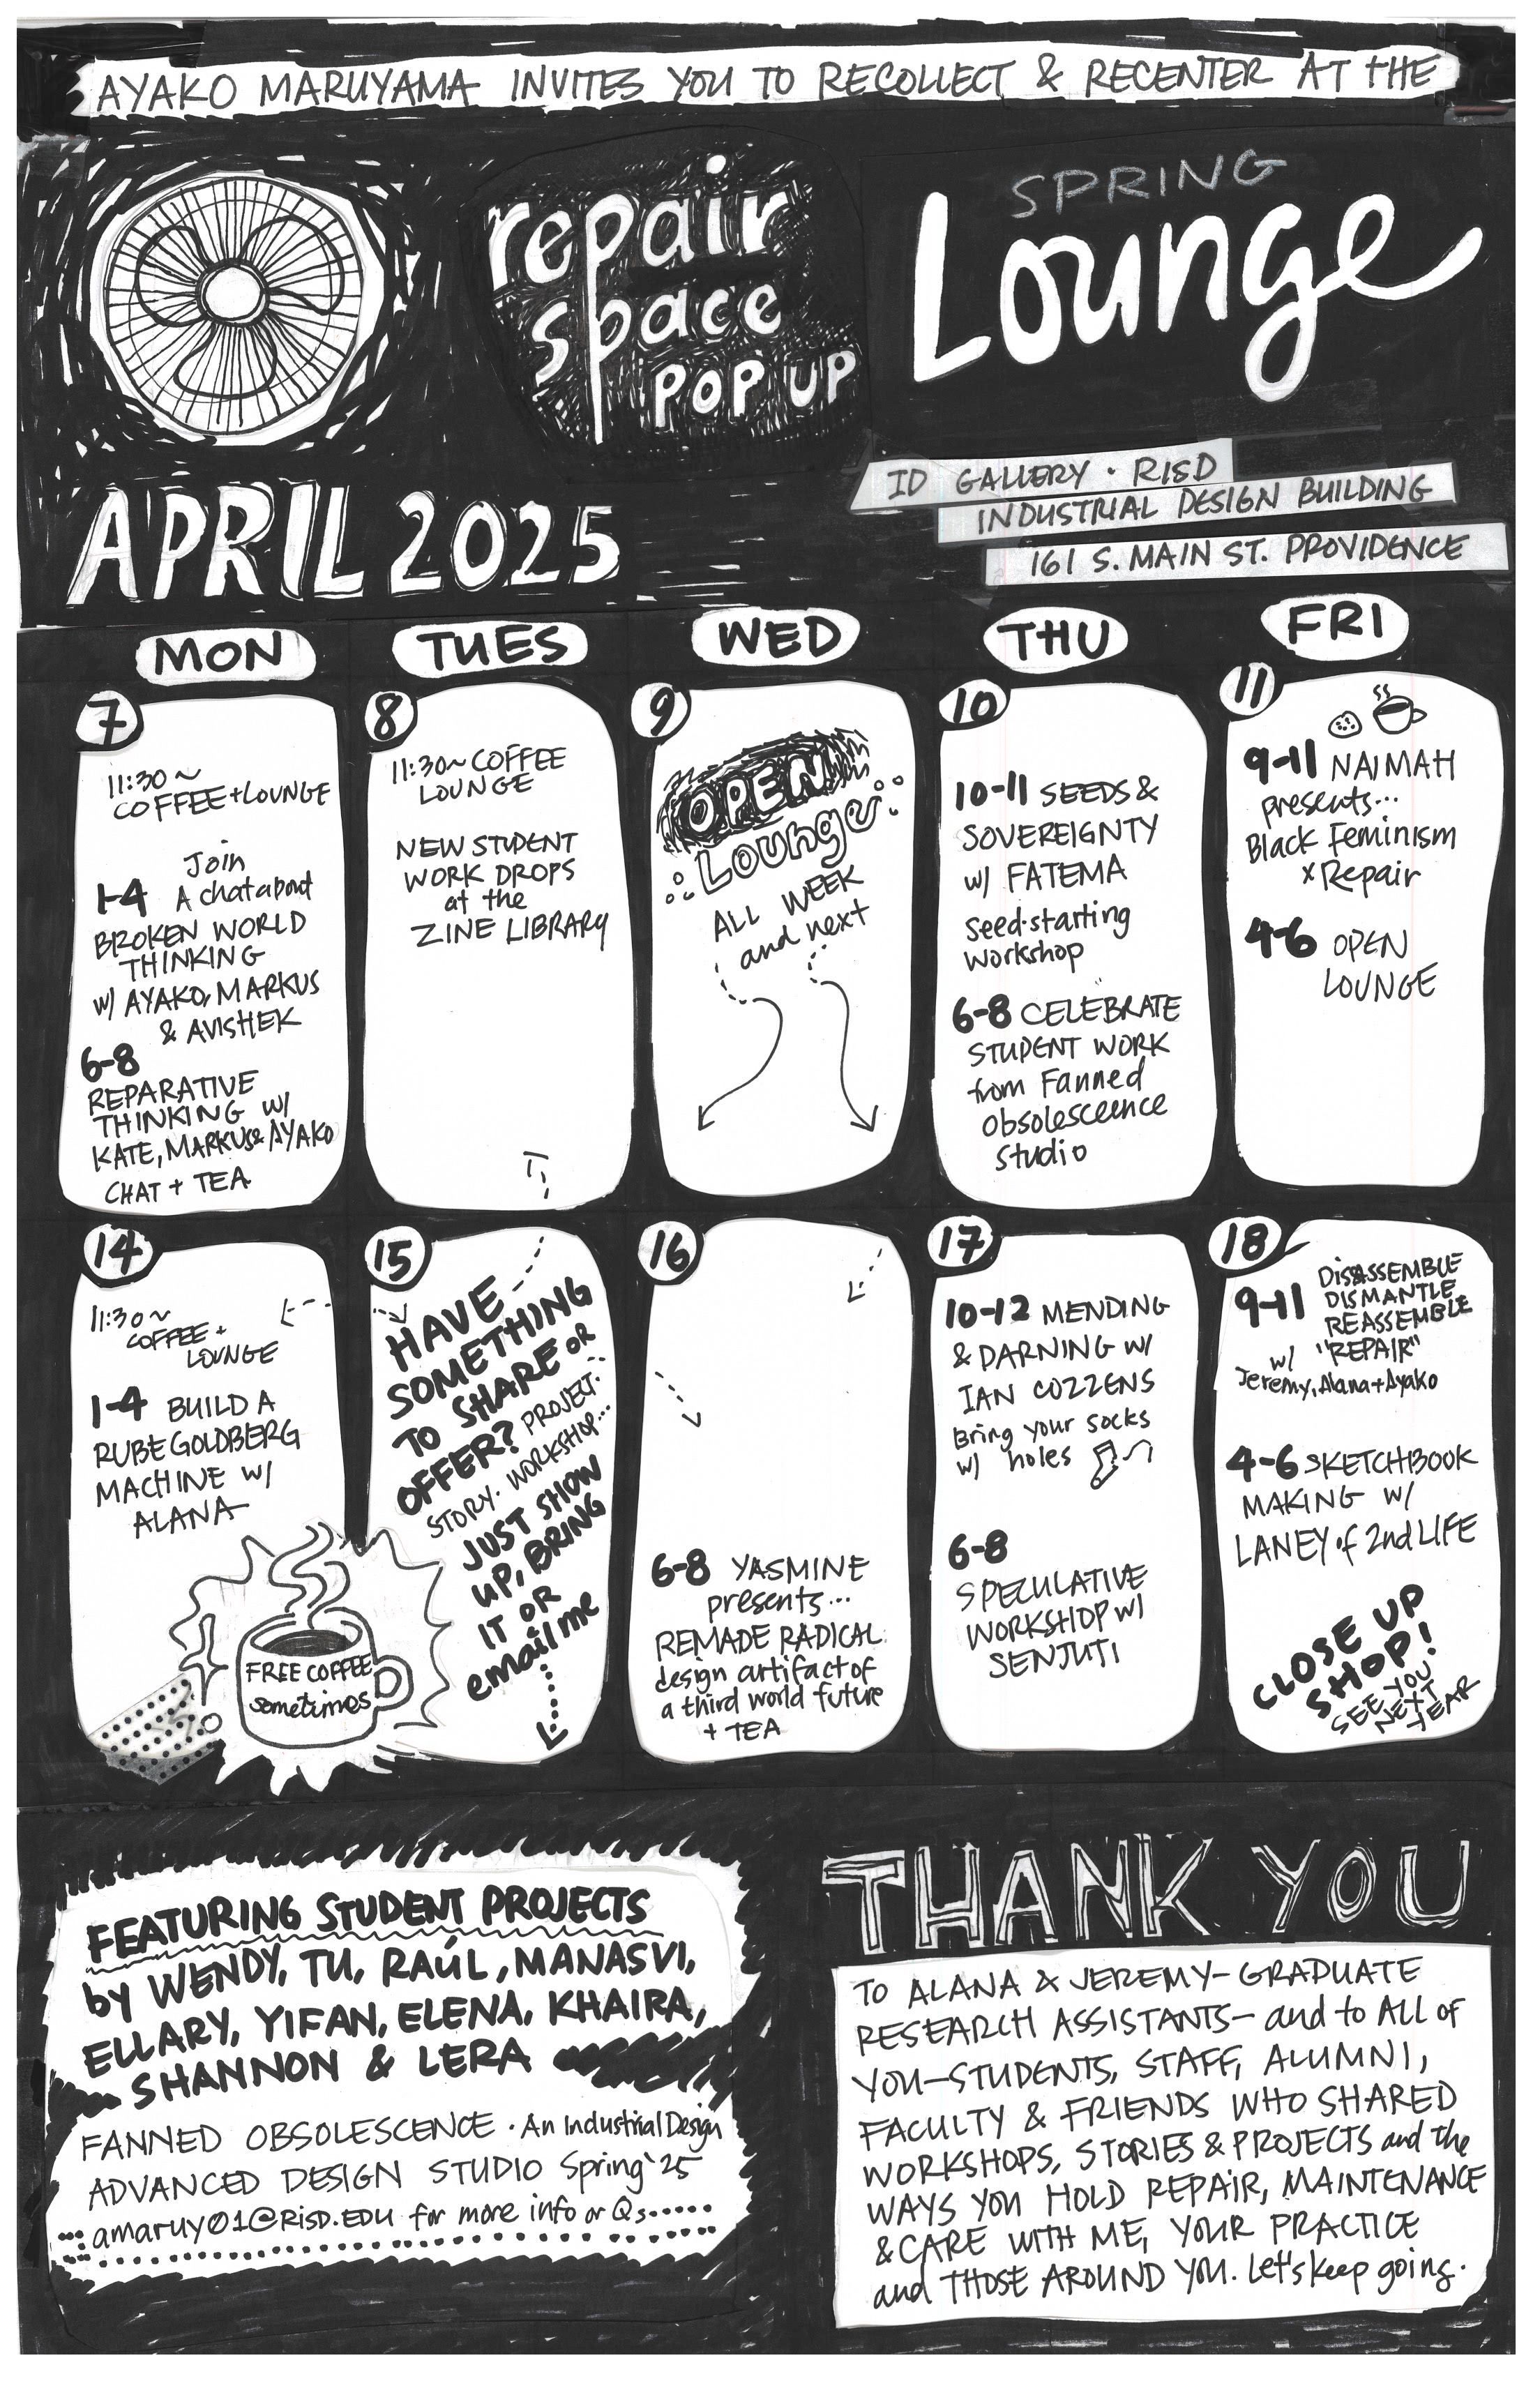 AYAKO MARUYAMA INVITES YOU TO RECOLLECT & RECENTER AT THE
repair
space
POP UP
SPRING
Lounge
ID GALLERY · RISD
INDUSTRIAL DESIGN BUILDING
161 S. MAIN ST. PROVIDENCE
APRIL 2025
MON
TUES
WED
THU
FRI
7
11:30~
COFFEE + LOUNGE
Join
1-4 A chat about
BROKEN WORLD
THINKING
W/ AYAKO, MARKUS
& AVISHEK
6-8
REPARATIVE
THINKING W/
KATE, MARKUS & AYAKO
CHAT + TEA
8
11:30~ COFFEE
LOUNGE
NEW STUDENT
WORK DROPS
at the
ZINE LIBRARY
9
OPEN
Lounge
ALL WEEK
and next
10
10-11 SEEDS &
SOVEREIGNTY
W/ FATEMA
Seed-starting
workshop
6-8 CELEBRATE
STUDENT WORK
from Fanned
Obsolesceence
Studio
11
9-11 NAIMAH
presents...
Black Feminism
x Repair
4-6 OPEN
LOUNGE
14
11:30~
COFFEE +
LOUNGE
1-4 BUILD A
RUBE GOLDBERG
MACHINE W/
ALANA
FREE COFFEE
sometimes
15
HAVE
SOMETHING
TO SHARE OR
OFFER? PROJECT.
STORY. WORKSHOP...
JUST SHOW
UP, BRING
IT OR
email me
16
6-8 YASMINE
presents...
REMADE RADICAL
design artifact of
a third world future
+ TEA
17
10-12 MENDING
& DARNING W/
IAN COZZENS
Bring your socks
w/ holes
6-8
SPECULATIVE
WORKSHOP W/
SENJUTI
18
9-11 DISASSEMBLE
DISMANTLE
REASSEMBLE
"REPAIR"
w/
Jeremy, Alana + Ayako
4-6 SKETCHBOOK
MAKING W/
LANEY of 2nd LIFE
CLOSE UP
SHOP!
SEE YOU
NEXT
YEAR
FEATURING STUDENT PROJECTS
by WENDY, TU, RAÚL, MANASVI,
ELLARY, YIFAN, ELENA, KHAIRA,
SHANNON & LERA
FANNED OBSOLESCENCE · An Industrial Design
ADVANCED DESIGN STUDIO Spring '25
amaruy01@RISD.EDU for more info or Qs
THANK YOU
TO ALANA & JEREMY—GRADUATE
RESEARCH ASSISTANTS— and to ALL of
YOU—STUDENTS, STAFF, ALUMNI,
FACULTY & FRIENDS WHO SHARED
WORKSHOPS, STORIES & PROJECTS and the
WAYS YOU HOLD REPAIR, MAINTENANCE
& CARE WITH ME, YOUR PRACTICE
and THOSE AROUND YOU. Let's keep going.